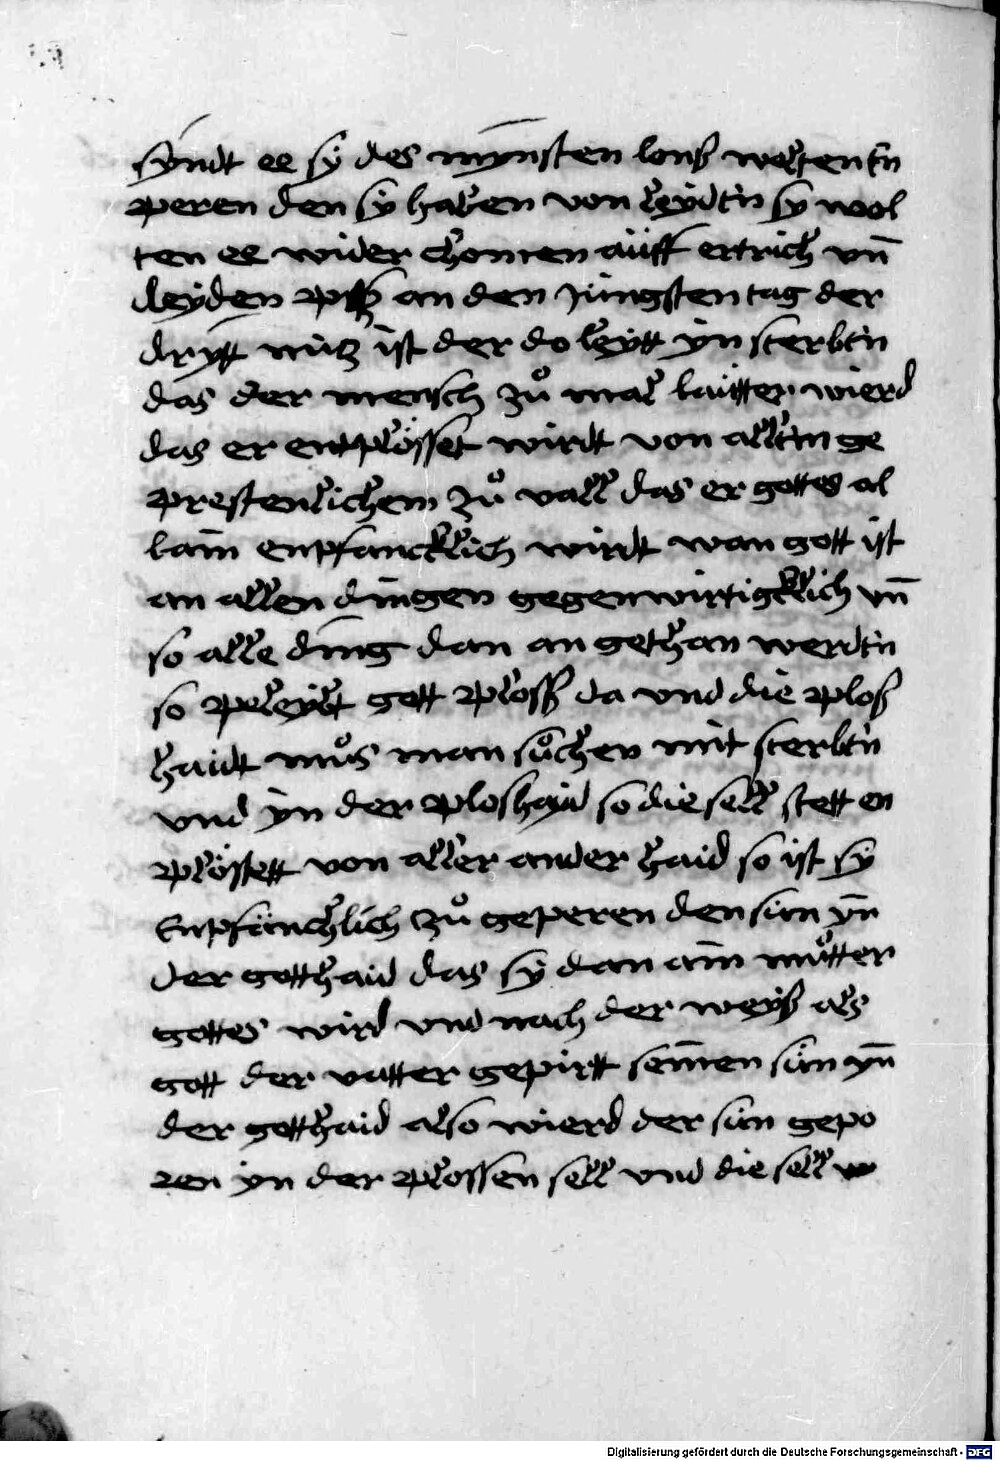 syndt ee sy des mynsten lons wolten en
peren den sy haben von leydin sy wol
ten ee wider chomen aüff ertrich vn̄
leyden piß an den jüngsten tag der
drytt nütz ist der do leytt yn sterbin
das der mensch zů mal laütter wierd
das er entplösset wirdt von allem ge
prestenlichem zů vall das er gottes al
lain enpfancklich wirdt wan gott ist
an allen dingen gegenwirtigklich vn̄
so alle ding dan an gethan werdin
so pleybt gott ploss da vnd die plos
haidt můs man sůchen mit sterbin
vnd yn der ploshaid so die sell stett en
plöstett von aller ander haid so ist sy
enpfänchlich zů geperen den sun yn̄
der gotthaid das sy dan ain můtter
gottes wird vnd nach der weyß als
gott der vatter gepirtt seinen sün yn̄
der gotthaid also wierd der sün gepo
ren yn der plossen sell vnd die sell w
Digitalisierung gefördert durch die Deutsche Forschungsgemeinschaft - DFG